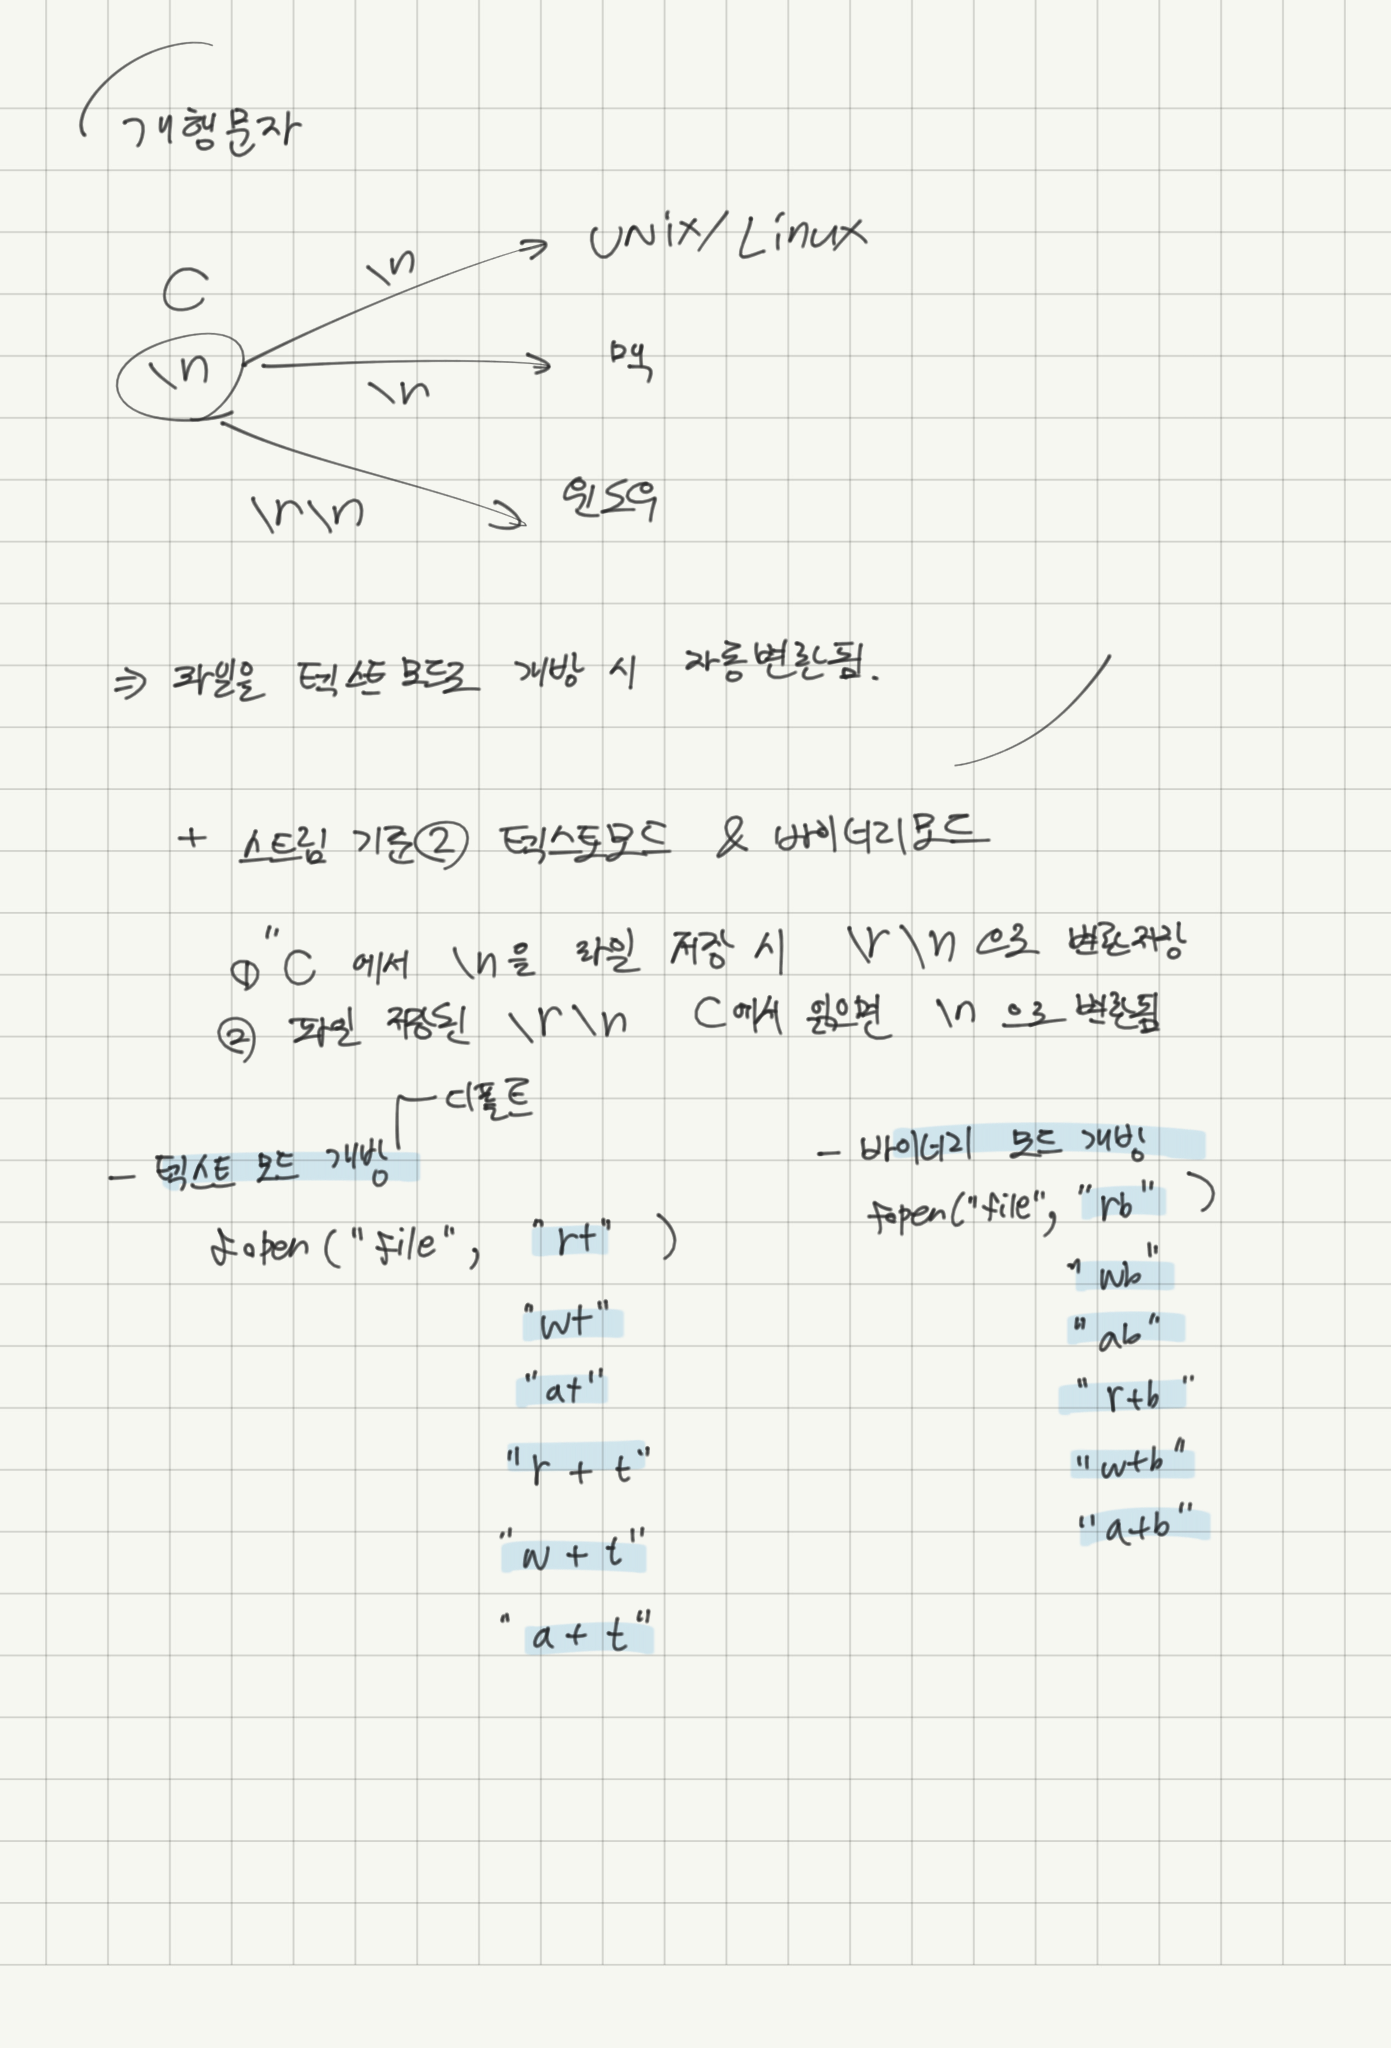 개행문자
\n Unix/Linux
C
\n
\n 맥
\r\n 윈도우
⇒ 파일을 텍스트모드로 개방 시 자동변환됨.
+ 스트림 기준② 텍스트모드 & 바이너리모드
①"C 에서 \n을 파일 저장 시 \r\n으로 변환저장
② 파일 저장된 \r\n C에서 읽으면 \n 으로 변환됨
디폴트
- 텍스트 모드 개방
fopen("file", "rt" )
"wt"
"at"
"r + t"
"w + t"
"a + t"
- 바이너리 모드 개방
fopen("file", "rb" )
"wb"
"ab"
"r+b"
"w+b"
"a+b"